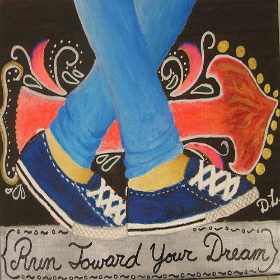 D.L
Run Toward Your Dream